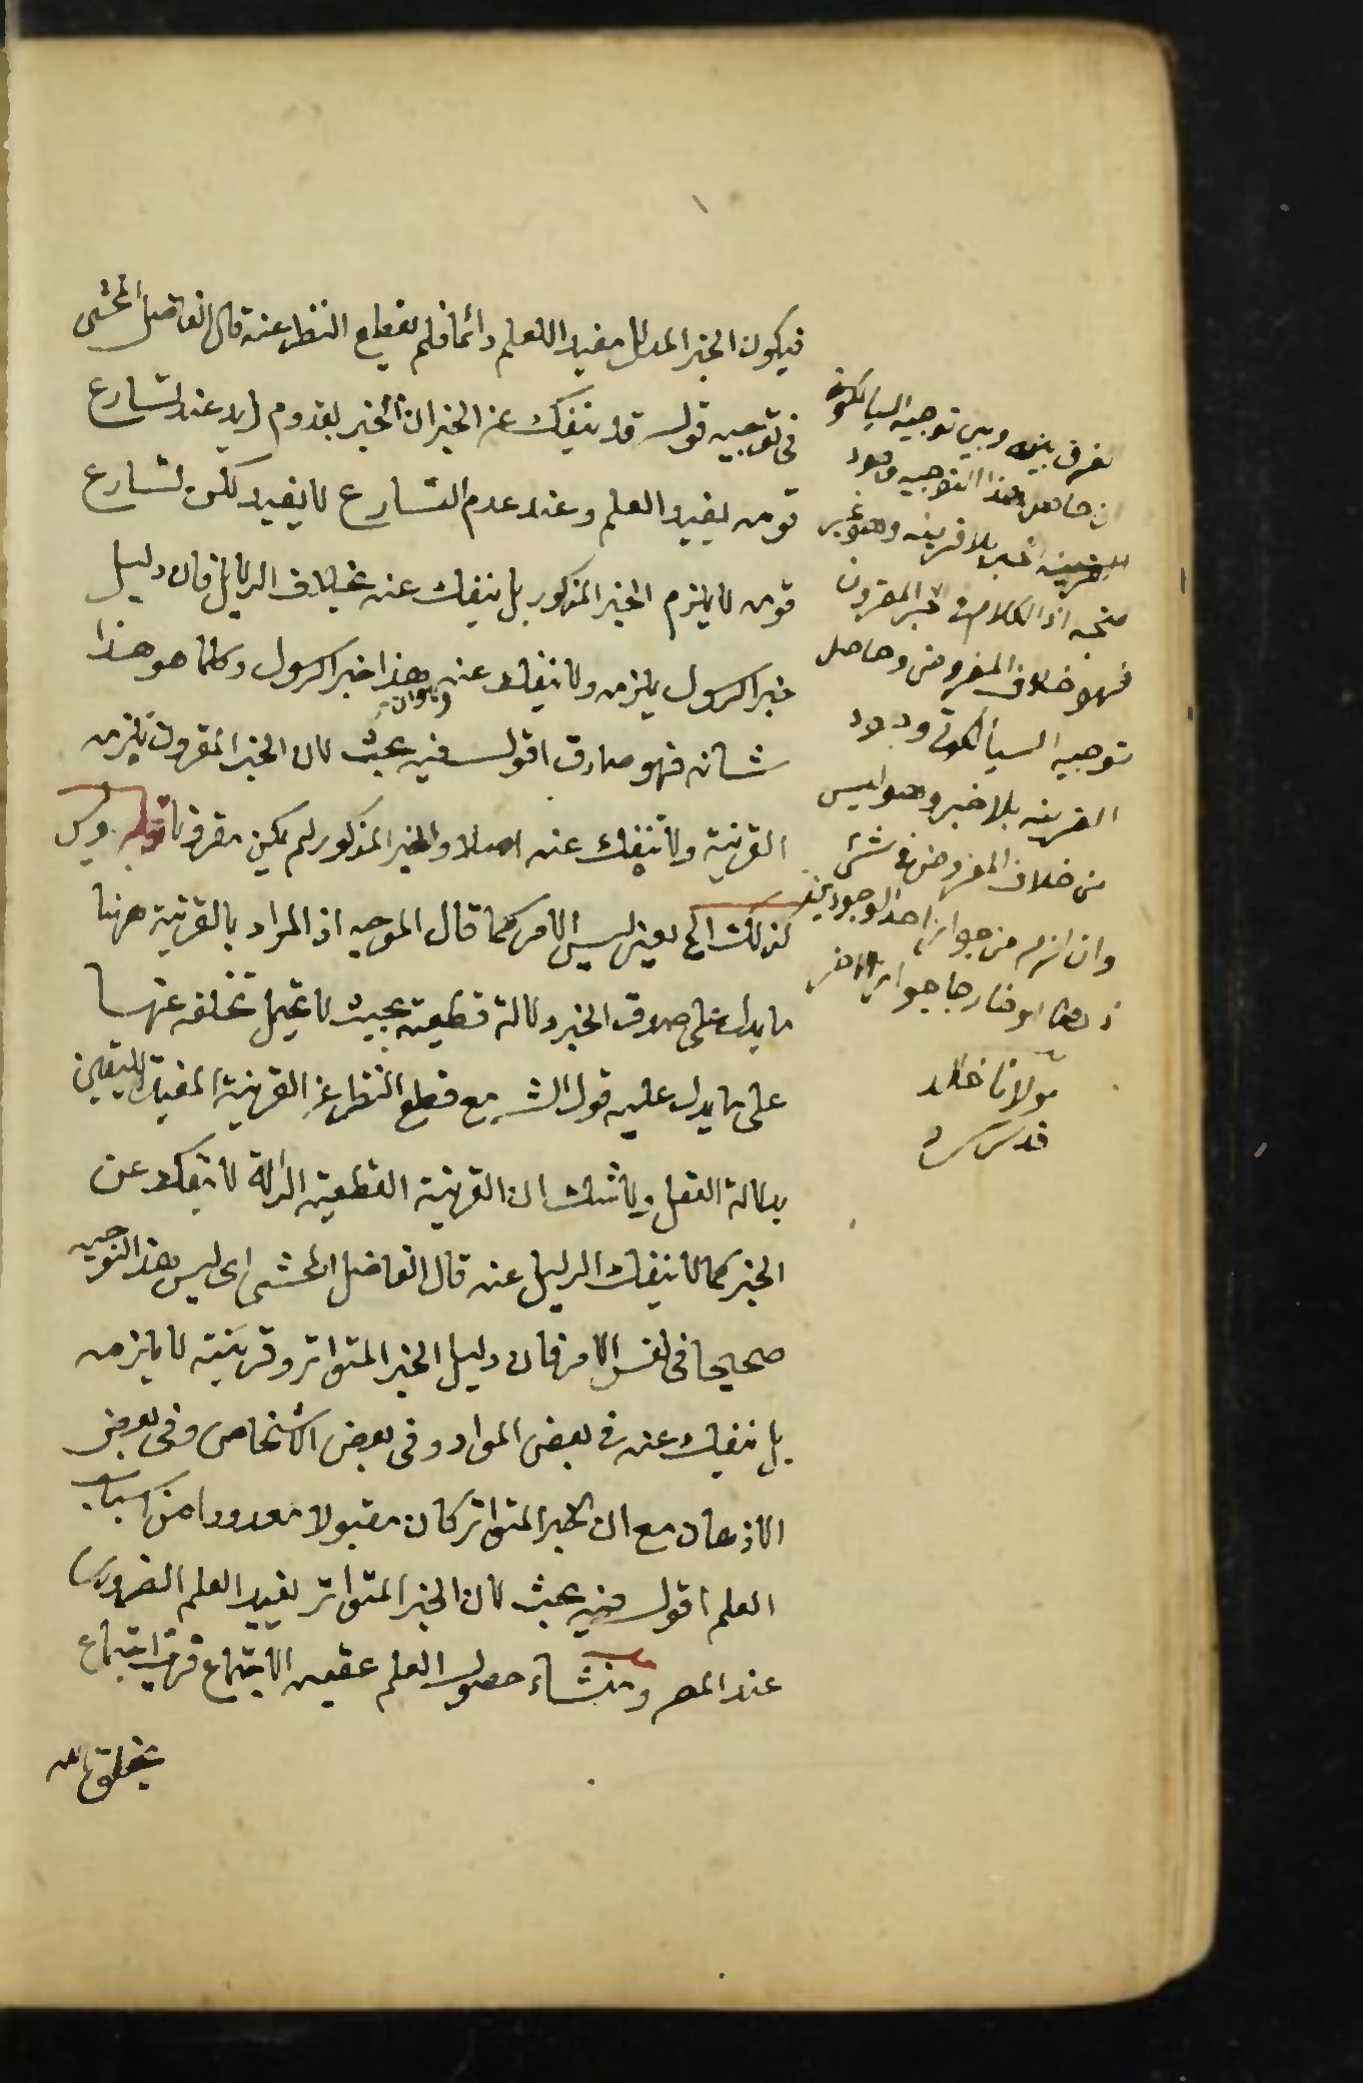 فيكون الخبر المدلل مفيدا للعلم دائما فلم يقطع النظر عنه قال الفاضل المحشى
فى توجيه قوله قد ينفك عن الخبر ان الخبر بقدوم زيد عند تسارع
قومه يفيد العلم وعند عدم التسارع لا يفيد لكن تسارع
قومه لا يلزم الخبر المذكور بل ينفك عنه بخلاف الدلايل فان دليل
خبر الرسول يلزمه ولا ينفك عنه وهو ان هذا خبر الرسول وكلما هو هذا
شانه فهو صادق اقول فيه بحث لان الخبر المقرون يلزمه
القرنية ولا تنفك عنه اصلا والخبر المذكور لم يكن مقرونا قوله وليس
كذلك الخ يعنى ليس الامر كما قال الموجه اذ المراد بالقرنية ههنا
ما يدل على صدق الخبر دلالة قطعية بحيث لا يحتمل تخلفه عنها
على ما يدل عليه قول الش مع قطع النظر عن القرنية المفيدة لليقين
بدلالة العقل ولا شك ان القرنية القطعية الدالة لا تنفك عن
الخبر كما لا ينفك الدليل عنه قال الفاضل المحشى اى ليس هذا التوجيه
صحيحا فى نفس الامر فان دليل الخبر المتواتر وقرينته لا يلزمه
بل ينفك عنه فى بعض المواد وفى بعض الاشخاص وفى بعض
الاذهان مع ان الخبر المتواتر كان مقبولا معدودا من اسباب
العلم اقول فيه بحث لان الخبر المتواتر يفيد العلم الضرورى
عند المصر ومنشاء حصول العلم عقيب الاجتماع اجتماع
بخلق الله
بينه وبين توجيه السيالكوتى
ان حاصل هذا التوجيه وجود
الخبر بلا قرينه وهو غير
متجه اذ الكلام فى الخبر المقرون
فهو خلاف المفروض وحاصل
توجيه السيالكوتى وجود
القرينه بلا خبر وهو ليس
من خلاف المفروض فى شئ
وان لزم من جواز احد الوجودين
جواز الاخر
مولانا خالد
قدس سره